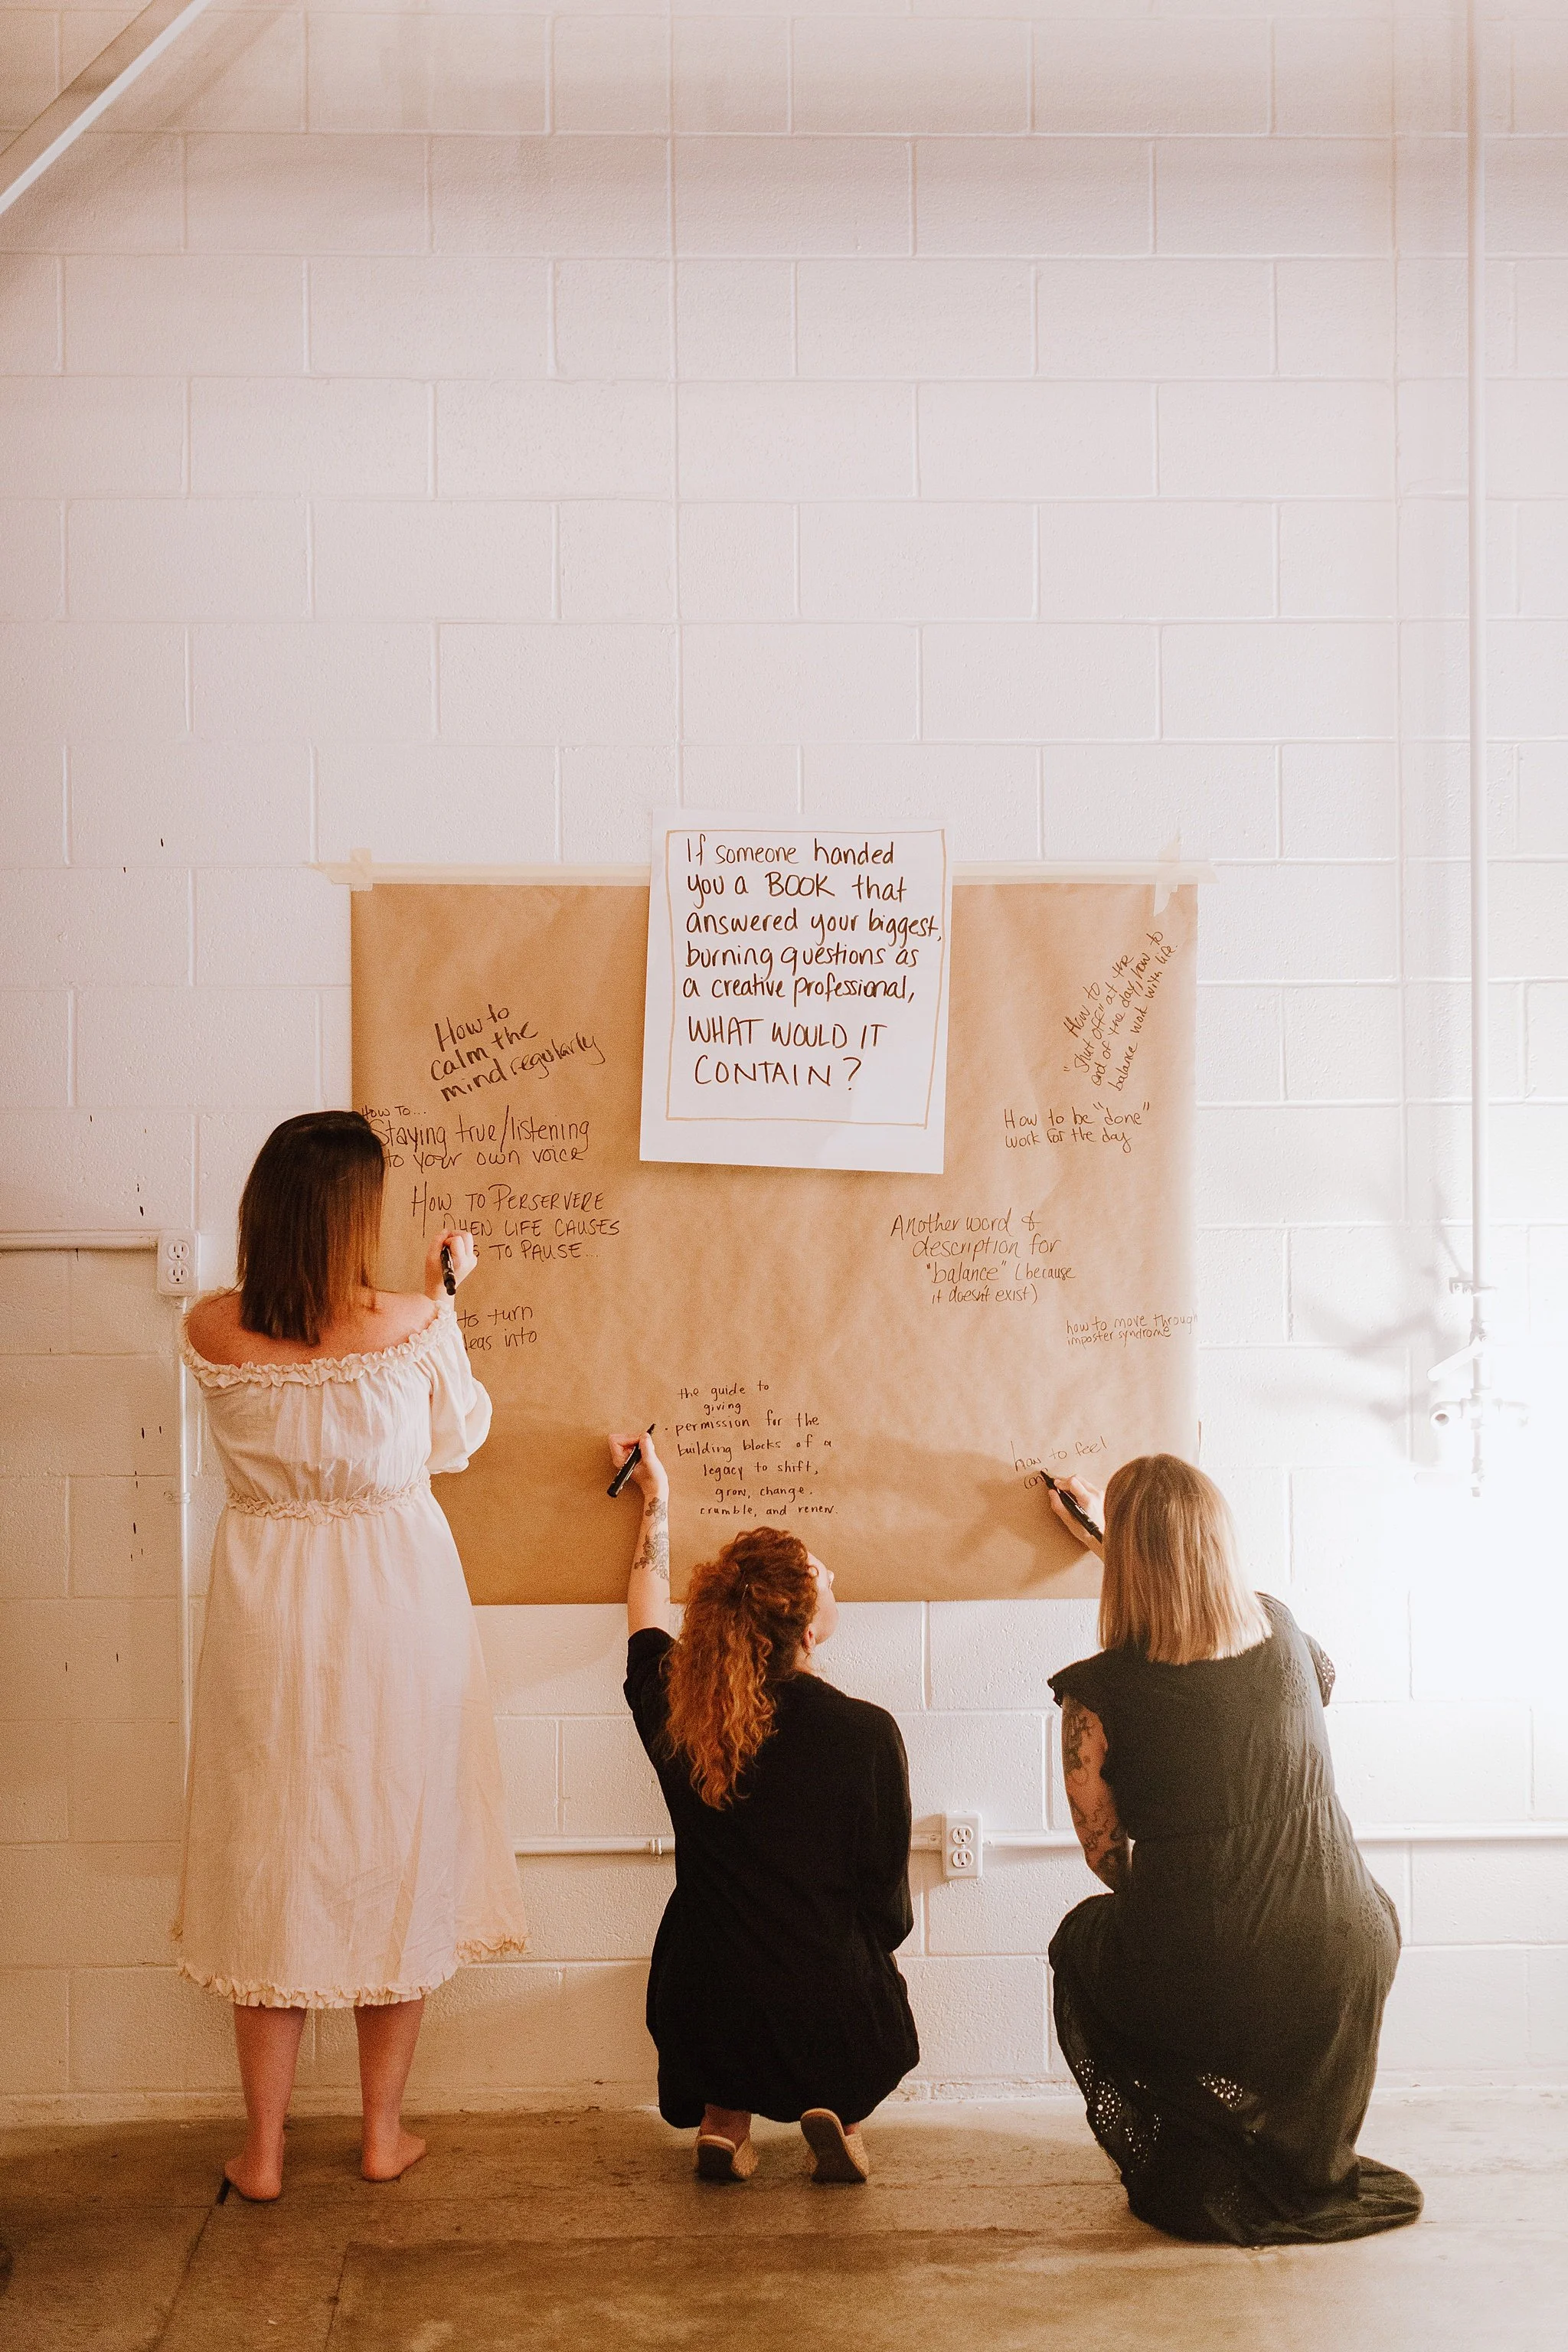 If someone handed
you a BOOK that
answered your biggest,
burning questions as
a creative professional,
WHAT WOULD IT
CONTAIN?
How to
calm the
mind regularly
HOW TO...
Staying true/listening
to your own voice
HOW TO PERSERVERE
WHEN LIFE CAUSES
TO PAUSE...
to turn
into
the guide to
giving
permission for the
building blocks of a
legacy to shift,
grow, change,
crumble, and renew.
How to
"shut off" at the
end of the day, how to
balance work with life.
How to be "done"
work for the day
Another word &
description for
"balance" (because
it doesn't exist)
how to move through
imposter syndrome
how to feel
con